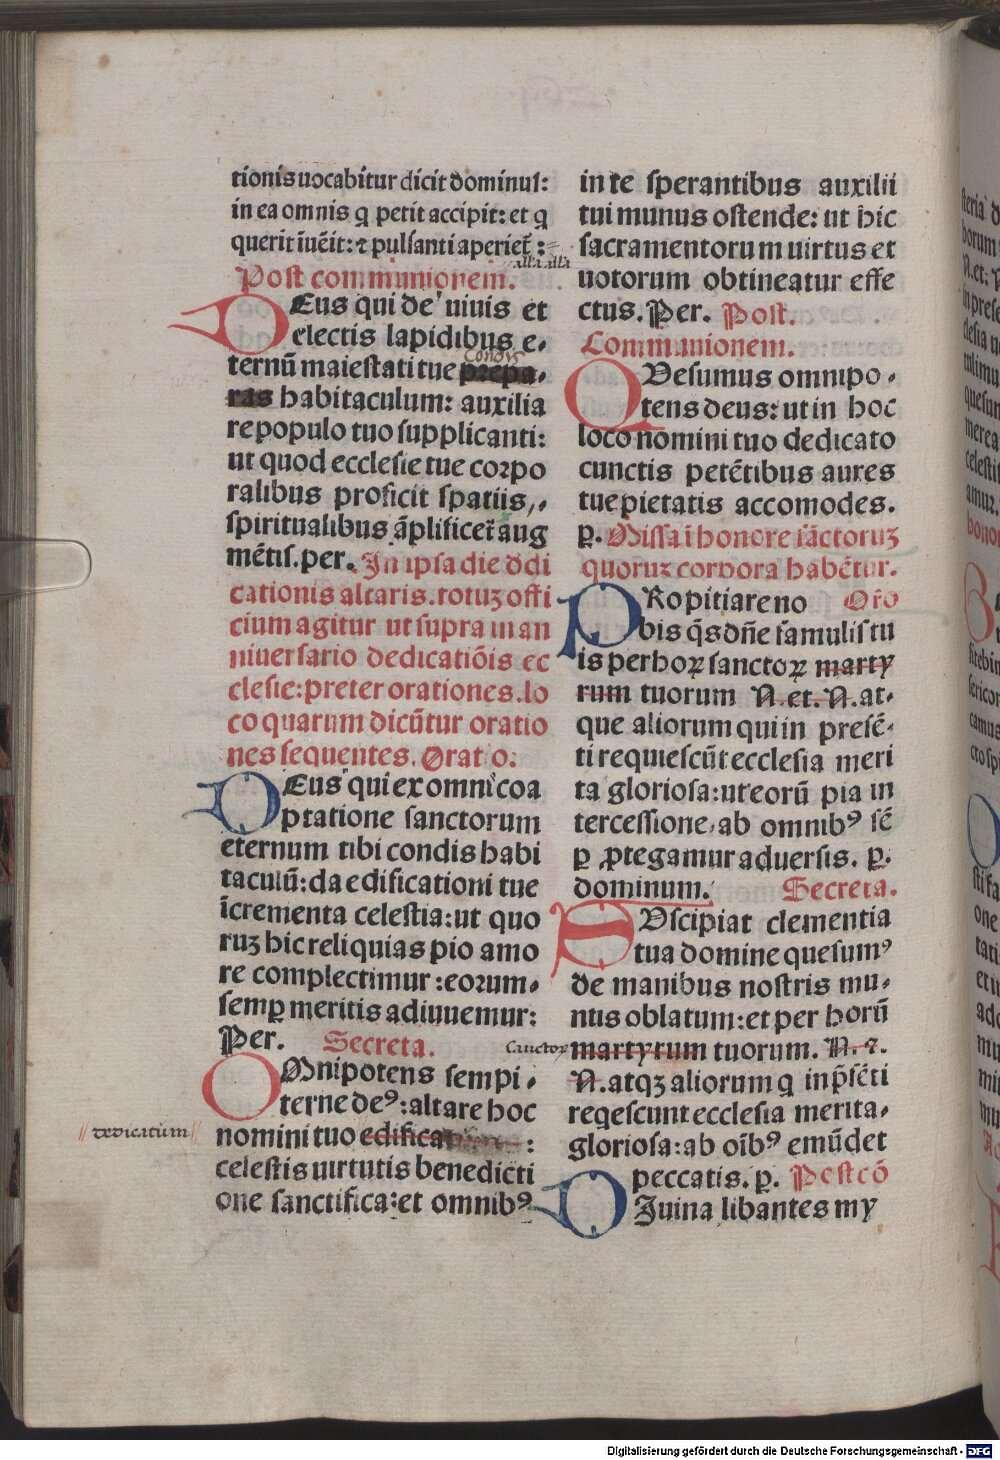 tionis uocabitur dicit dominus:
in ea omnis q petit accipit: et q
querit iuēit: ⁊ pulsanti aperiet̄ :
alła alła
Post communionem.
DEus qui de uiuis et
electis lapidibus e,
ternū maiestati tue prepa,
condis
ras habitaculum: auxilia
re populo tuo supplicanti:
ut quod ecclesie tue corpo
ralibus proficit spatiis,,
spiritualibus āplificet̄ aug
mētis. per. In ipsa die ddi
cationis altaris. totuʒ offi
cium agitur ut supra in an
niuersario dedicatiōis ec
clesie: preter orationes. lo
co quarum dicūtur oratio
nes sequentes. Oratio.
DEus qui ex omni coa
ptatione sanctorum
eternum tibi condis habi
taculū: da edificationi tue
īcrementa celestia: ut quo
ruʒ hic reliquias pio amo
re complectimur: eorum,
semꝑ meritis adiuuemur:
Per. Secreta.
OMnipotens sempi,
terne deꝰ: altare hoc
nomini tuo edifica :
dedicatum
celestis uirtutis benedicti
one sanctifica: et omnibꝰ
in te sperantibus auxilii
tui munus ostende: ut hic
sacramentorum uirtus et
uotorum obtineatur effe
ctus. Per. Post.
Communionem.
QVesumus omnipo,
tens deus: ut in hoc
loco nomini tuo dedicato
cunctis petētibus aures
tue pietatis accomodes.
ꝑ. Missa ī honore sāctoruʒ
quoruʒ corpora habētur.
PRopitiare no Orō
bis q̄s dn̄e famulis tu
is per hoꝝ sanctoꝝ marty
rum tuorum N. et. N. at,
que aliorum qui in presē,
ti requiescūt ecclesia meri
ta gloriosa: ut eorū pia in
tercessione, ab omnibꝰ sē
ꝑ ꝓtegamur aduersis. ꝑ.
dominum. Secreta.
SVscipiat clementia
tua domine quesumꝰ
de manibus nostris mu,
nus oblatum: et per horū
sanctoꝝ martyrum tuorum. N. ⁊.
N. atqʒ aliorum q in p̄sēti
reqescunt ecclesia merita,
gloriosa: ab oībꝰ emūdet
peccatis. ꝑ. Postcō
DIuina libantes my
Digitalisierung gefördert durch die Deutsche Forschungsgemeinschaft - DFG